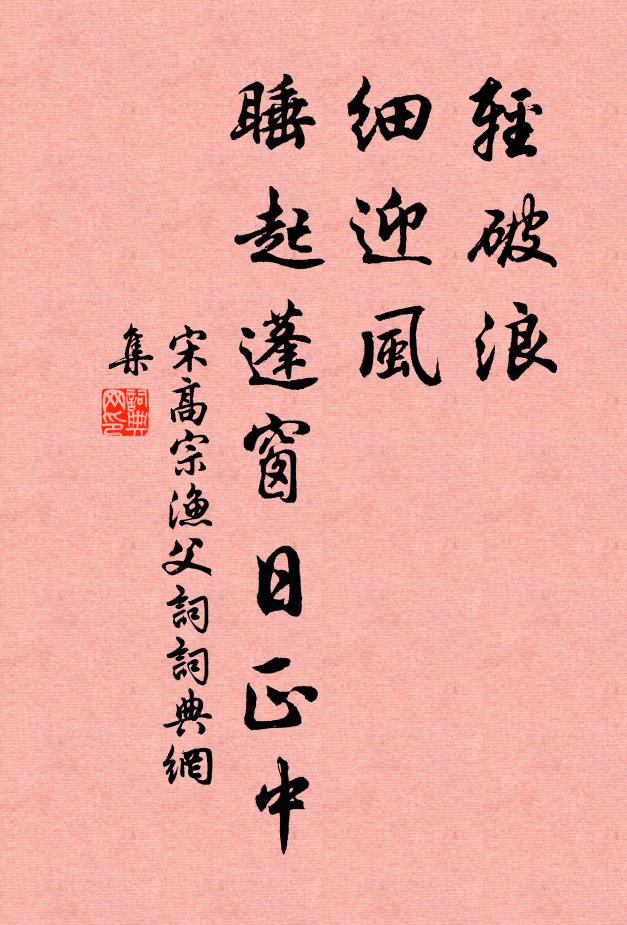 輕破浪
細迎風
睡起蓬窗日正中
宋高宗漁父詞詞典網
集
詞典
网印